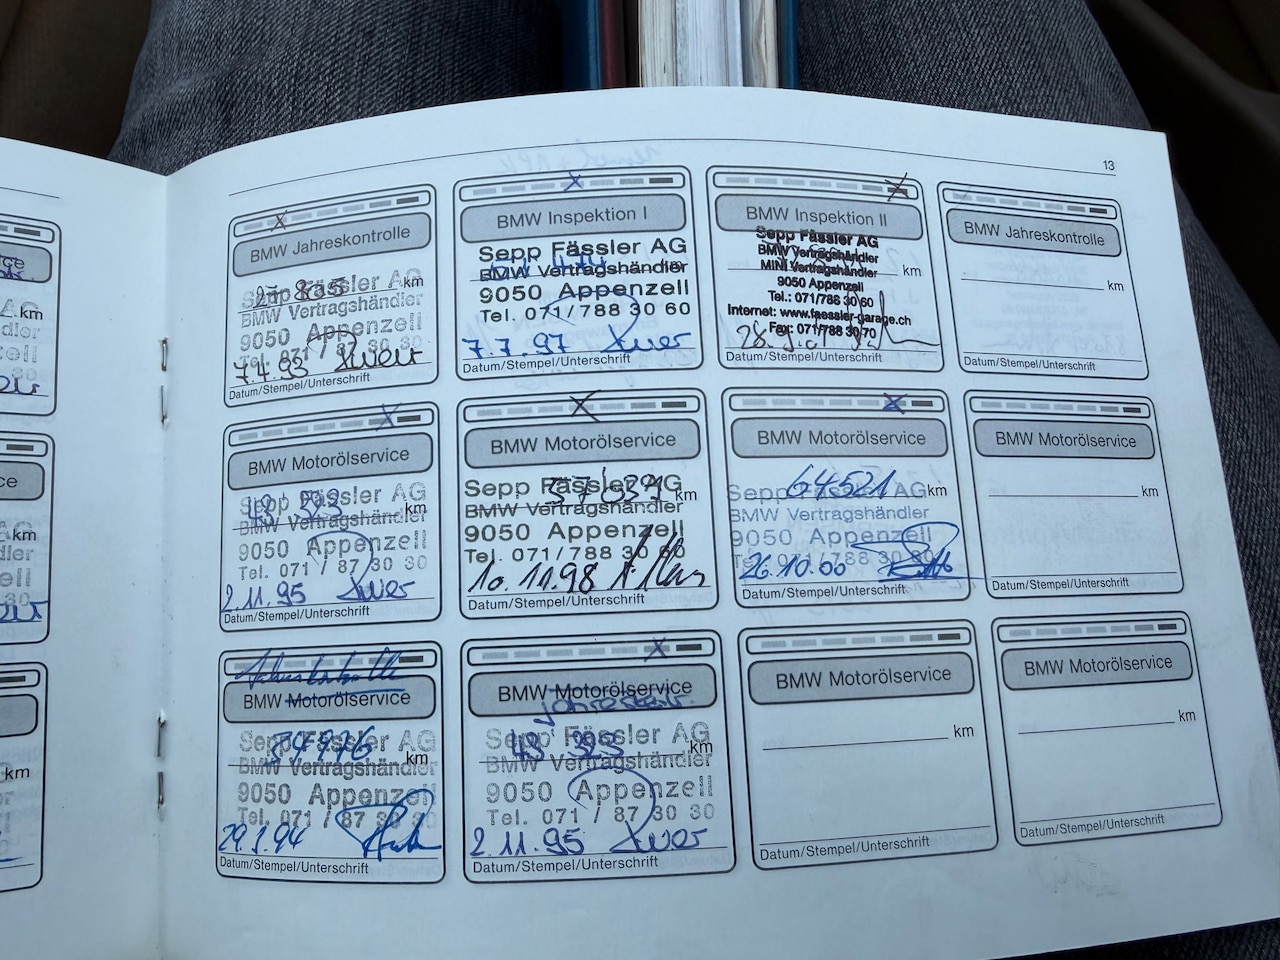 13
BMW Jahreskontrolle
km
Sepp Fässler AG
BMW Vertragshändler
9050 Appenzell
Tel. 071 / 87 30 30
7.4.93
Datum/Stempel/Unterschrift
BMW Inspektion I
Sepp Fässler AG
BMW Vertragshändler
km
9050 Appenzell
Tel. 071/788 30 60
7.7.97
Datum/Stempel/Unterschrift
BMW Inspektion II
Sepp Fässler AG
BMW Vertragshändler
km
MINI Vertragshändler
9050 Appenzell
Tel.: 071/788 30 60
Internet: www.faessler-garage.ch
Fax: 071/788 30 70
Datum/Stempel/Unterschrift
BMW Jahreskontrolle
km
Datum/Stempel/Unterschrift
BMW Motorölservice
Sepp Fässler AG
km
BMW Vertragshändler
9050 Appenzell
Tel. 071 / 87 30 30
2.11.95
Datum/Stempel/Unterschrift
BMW Motorölservice
Sepp Fässler AG
km
BMW Vertragshändler
9050 Appenzell
Tel. 071/788 30 60
10.11.98
Datum/Stempel/Unterschrift
BMW Motorölservice
64521 km
Sepp Fässler AG
BMW Vertragshändler
9050 Appenzell
Tel. 071/788 30 60
26.10.00
Datum/Stempel/Unterschrift
BMW Motorölservice
km
Datum/Stempel/Unterschrift
Jahreskontrolle
BMW Motorölservice
Sepp Fässler AG
km
BMW Vertragshändler
9050 Appenzell
Tel. 071 / 87 30 30
29.3.94
Datum/Stempel/Unterschrift
BMW Motorölservice
Sepp Fässler AG
km
BMW Vertragshändler
9050 Appenzell
Tel. 071 / 87 30 30
2.11.95
Datum/Stempel/Unterschrift
BMW Motorölservice
km
Datum/Stempel/Unterschrift
BMW Motorölservice
km
Datum/Stempel/Unterschrift